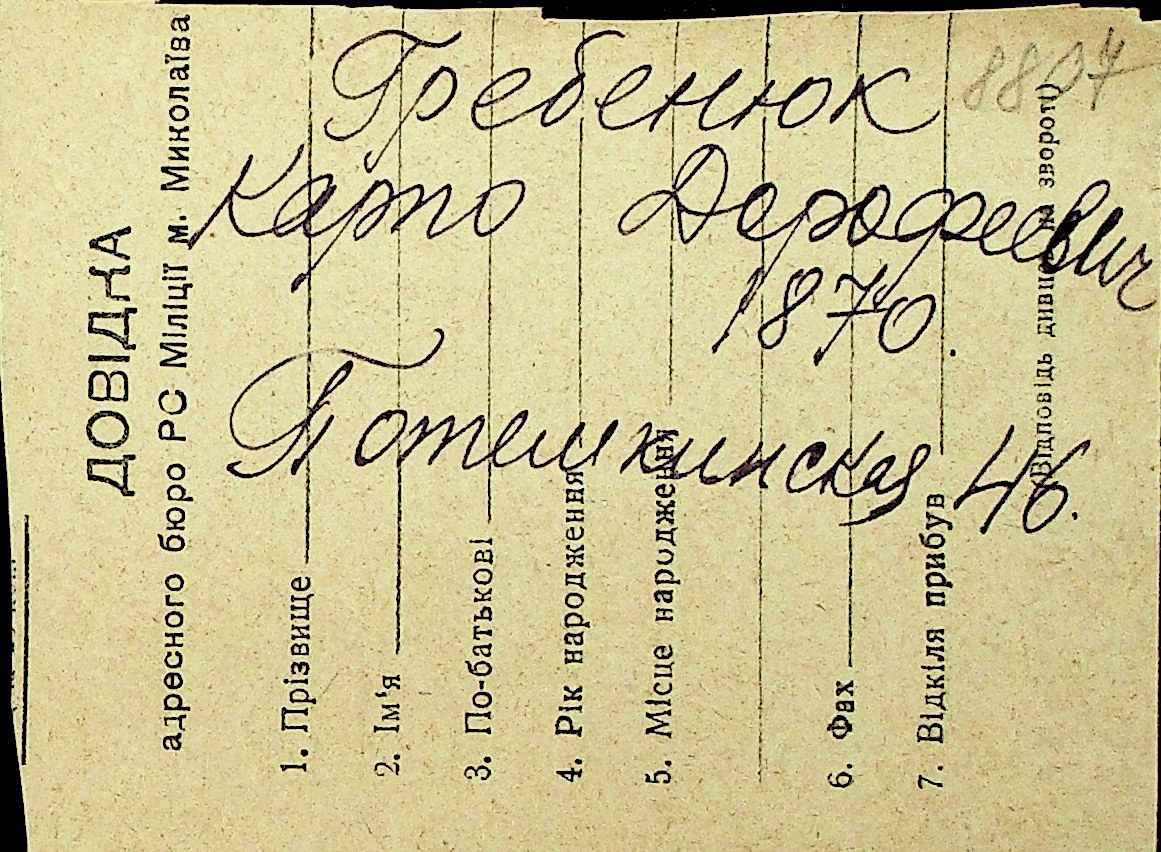 8807
Гребенюк
Карпо Дорофеевич
1870.
Потемкинская 46.
ДОВІДКА
адресного бюро РС Міліції м. Миколаїва
1. Прізвище
2. Ім'я
3. По-батькові
4. Рік народження
5. Місце народження
6. Фах
7. Відкіля прибув
(Відповідь дивись звороті)